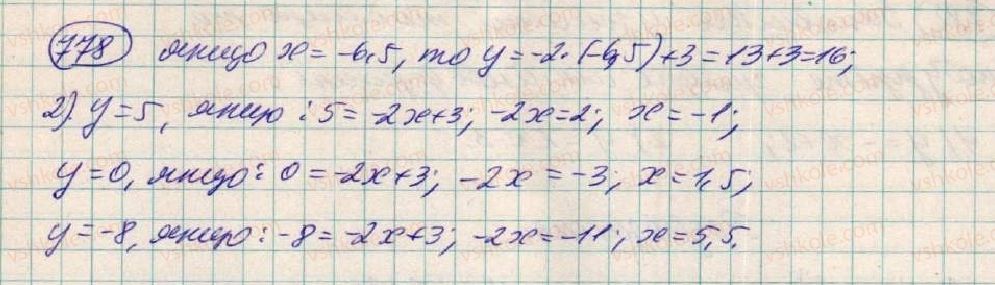 778 якщо x = -6,5, то y = -2·(-6,5)+3 = 13+3=16;
2) y=5, якщо: 5 = -2x+3; -2x=2; x=-1;
y=0, якщо: 0 = -2x+3; -2x = -3; x=1,5;
y=-8, якщо: -8 = -2x+3; -2x=-11; x=5,5.